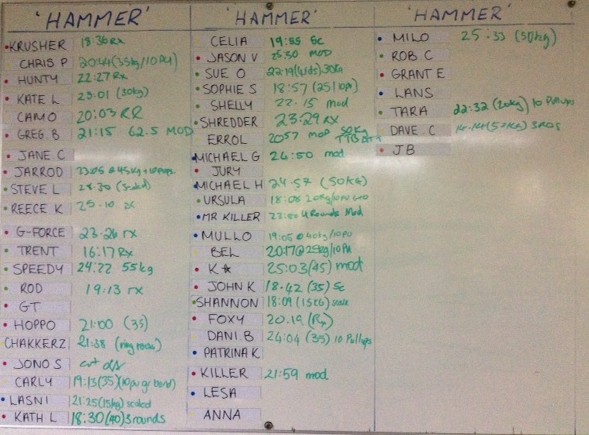 'HAMMER'
KRUSHER 18:36 RX
CHRIS P 20:44 (35kg/10 PU)
HUNTY 22:27 Rx
KATE L 23:01 (30kg)
CAMO 20:03 RR
GREG B 21:15 62.5 MOD
JANE C
JARROD 23:05 @ 45kg
STEVE L
REECE K
G-FORCE 23:26 rx
TRENT 16:17 Rx
SPEEDY 24:22 55kg
ROD 19:13 rx
GT
HOPPO 21:00 (35)
CHAKKERZ 21:38 (ring rows)
JONO S
CARLY 19:13 (35)
LASNI 21:25 (15kg) scaled
KATH L 18:30 (40) 3 rounds
'HAMMER'
CELIA 19:55 Sc
JASON V MOD
SUE O 22:19
SOPHIE S 18:57
SHELLY 22:15 mod
SHREDDER 23:29 rx
ERROL 20:57 mod 50kg
MICHAEL G 24:50 mod
JURY
MICHAEL H 24:57 (50kg)
URSULA 18:08
MR KILLER 4 Rounds Mod
MULLO 19:05 @ 40kg/10PU
BEL 20:17 @ 25kg/10 PU
K★ 25:03 (45) mod
JOHN K 18:42 (35) Sc
SHANNON 18:09 (15kg) scale
FOXY 20.19 (Rx)
DANI B 24:04 (35) 10 Pullups
PATRINA K
KILLER 21:59 mod
LESA
ANNA
'HAMMER'
MILO 25:33 (50kg)
ROB C
GRANT E
LANS
TARA 22:32 (20kg) 10 Pullups
DAVE C
JB